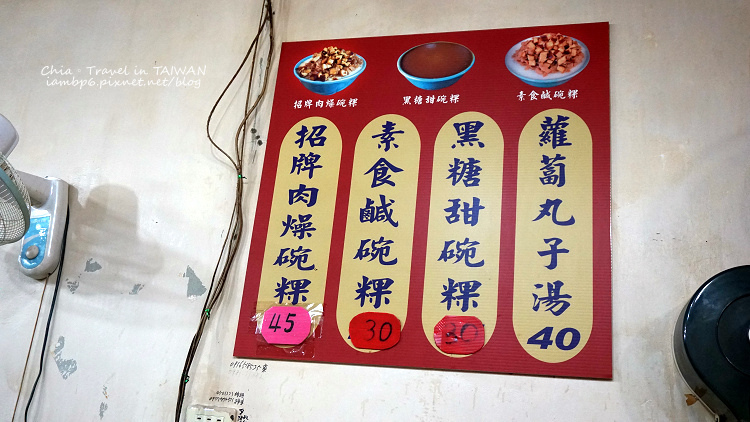 Chia・Travel in TAIWAN
iambp6.pixnet.net/blog
招牌肉燥碗粿
黑糖甜碗粿
素食鹹碗粿
招牌肉燥碗粿
45
素食鹹碗粿
30
黑糖甜碗粿
30
蘿蔔丸子湯
40